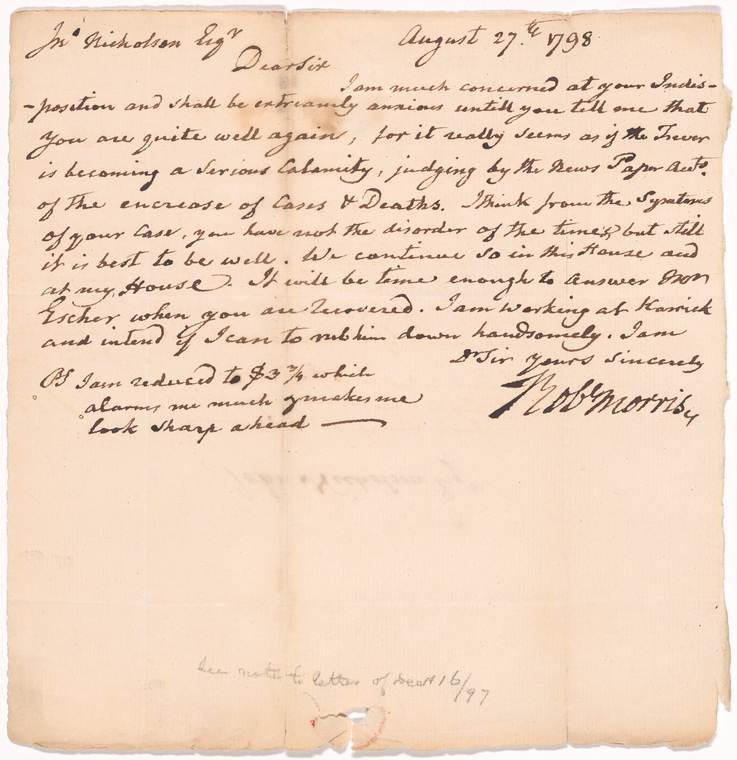 Jnº Nicholson Esqr
August 27.th 1798
Dear Sir
I am much concerned at your Indis-
-position and shall be extreamly anxious untill you tell me that
you are quite well again, for it really seems as if the Fever
is becoming a Serious Calamity, judging by the News Paper Accts.
of the encrease of Cases & Deaths. I think from the Symtoms
of your Case, you have not the disorder of the times, but still
it is best to be well. We continue so in this House and
at my House. It will be time enough to answer
Escher when you are recovered. I am working at Harrick
and intend if I can to rub him down handsomely. I am
Dr Sir yours Sincerely
Robt Morris
PS I am reduced to $3 3/4 which
alarms me much & makes me
look sharp ahead
John Nicholson Esqr
See note to letter of Decr 16/97